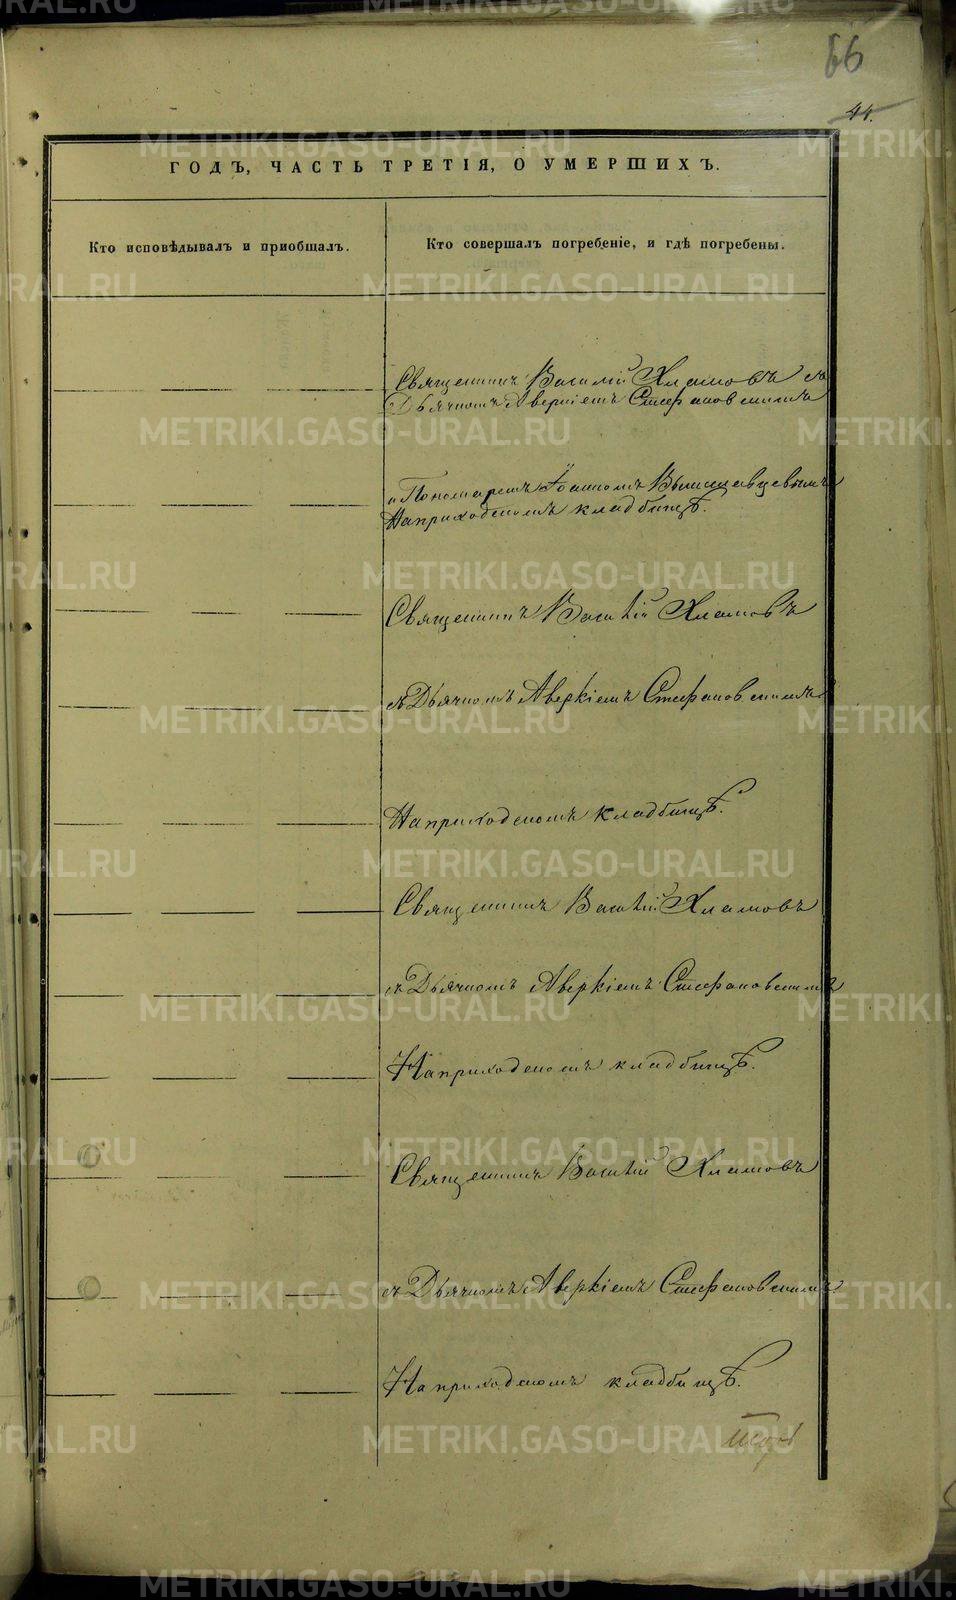 66
44.
ГОДЪ, ЧАСТЬ ТРЕТІЯ, О УМЕРШИХЪ.
Кто исповѣдывалъ и пріобщалъ.
Кто совершалъ погребеніе, и гдѣ погребены.
Священникъ Василій Хламовъ съ
Дьячкомъ Аверкіемъ Стефановскимъ
и Пономаремъ Іоанномъ Вышегавцевымъ
На приходскомъ кладбищѣ.
Священникъ Василій Хламовъ
съ Дьячкомъ Аверкіемъ Стефановскимъ
На приходскомъ кладбищѣ.
Священникъ Василій Хламовъ
съ Дьячкомъ Аверкіемъ Стефановскимъ
На приходскомъ кладбищѣ.
Священникъ Василій Хламовъ
съ Дьячкомъ Аверкіемъ Стефановскимъ
На приходскомъ кладбищѣ.
METRIKI.GASO-URAL.RU